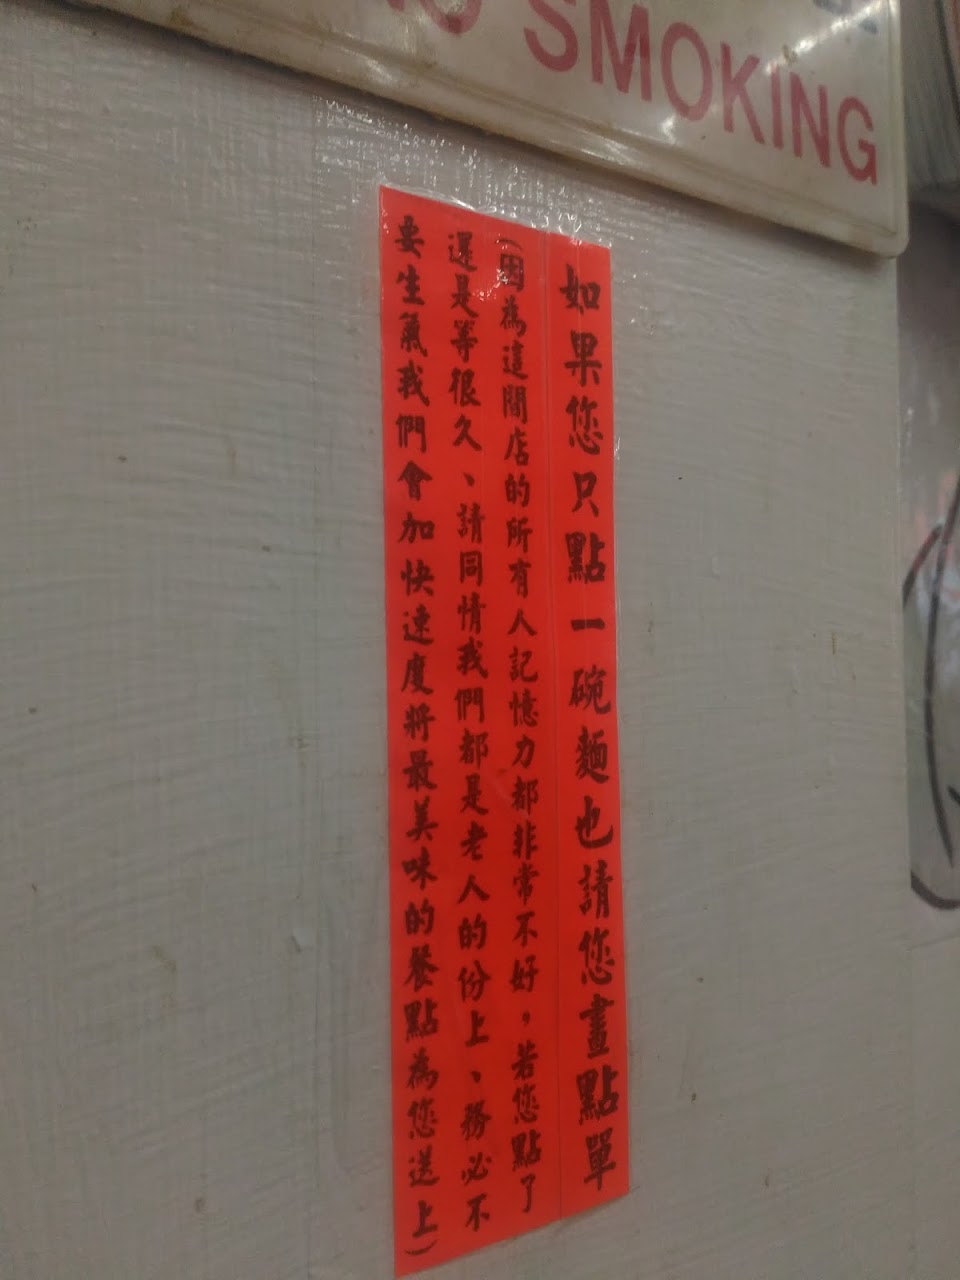 NO SMOKING
如果您只點一碗麵也請您畫點單
(因為這間店的所有人記憶力都非常不好，若您點了
還是等很久、請同情我們都是老人的份上、務必不
要生氣我們會加快速度將最美味的餐點為您送上)